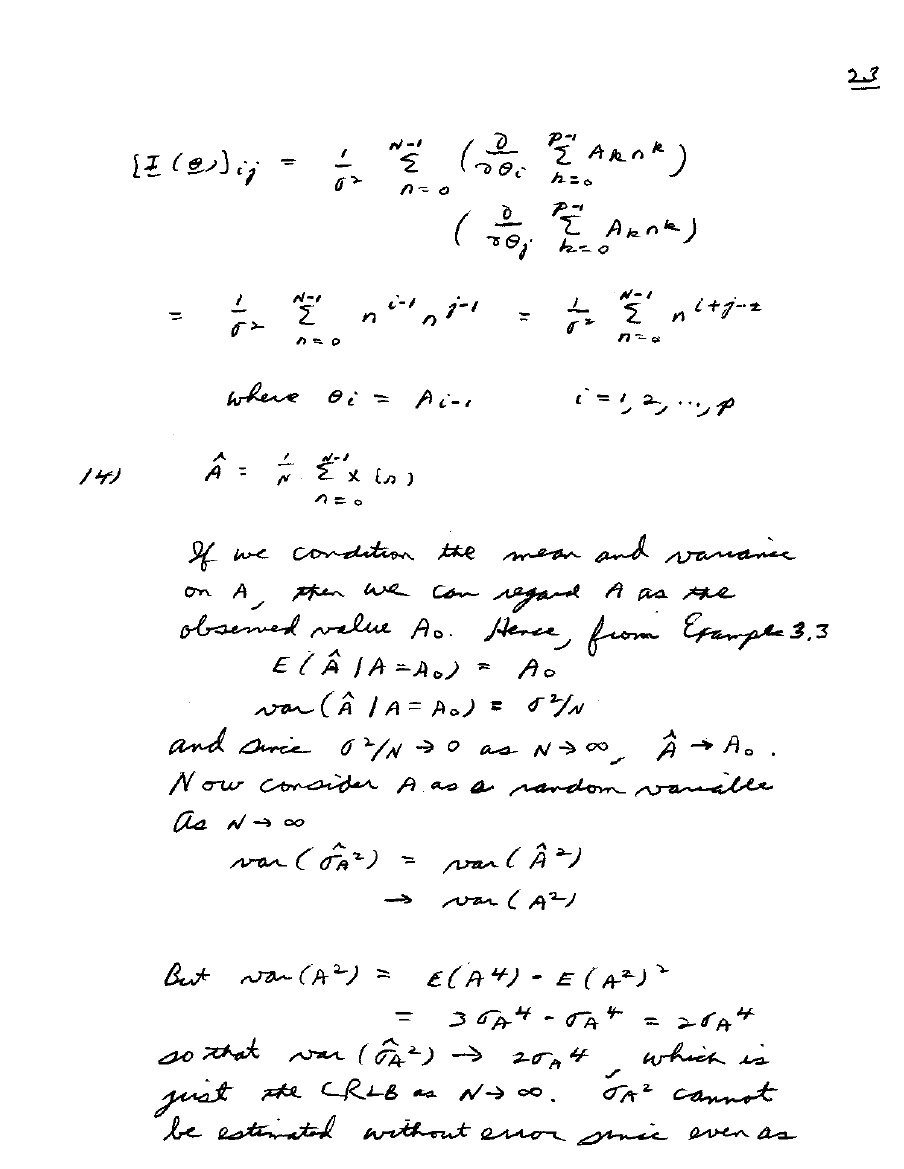 23
[I(θ)]ij = 1/σ² Σ_{n=0}^{N-1} (∂/∂θi Σ_{k=0}^{p-1} Ak n^k)
(∂/∂θj Σ_{k=0}^{p-1} Ak n^k)
= 1/σ² Σ_{n=0}^{N-1} n^{i-1} n^{j-1} = 1/σ² Σ_{n=0}^{N-1} n^{i+j-2}
where θi = Ai-1 i = 1, 2, ..., p
14) Â = 1/N Σ_{n=0}^{N-1} x[n]
If we condition the mean and variance
on A, then we can regard A as the
observed value A₀. Hence, from Example 3.3
E(Â|A=A₀) = A₀
var(Â|A=A₀) = σ²/N
and since σ²/N → 0 as N → ∞, Â → A₀.
Now consider A as a random variable
As N → ∞
var(σ̂A²) = var(²)
→ var(A²)
But var(A²) = E(A⁴) - E(A²)²
= 3σA⁴ - σA⁴ = 2σA⁴
so that var(σ̂A²) → 2σA⁴, which is
just the CRLB as N → ∞. σA² cannot
be estimated without error since even as